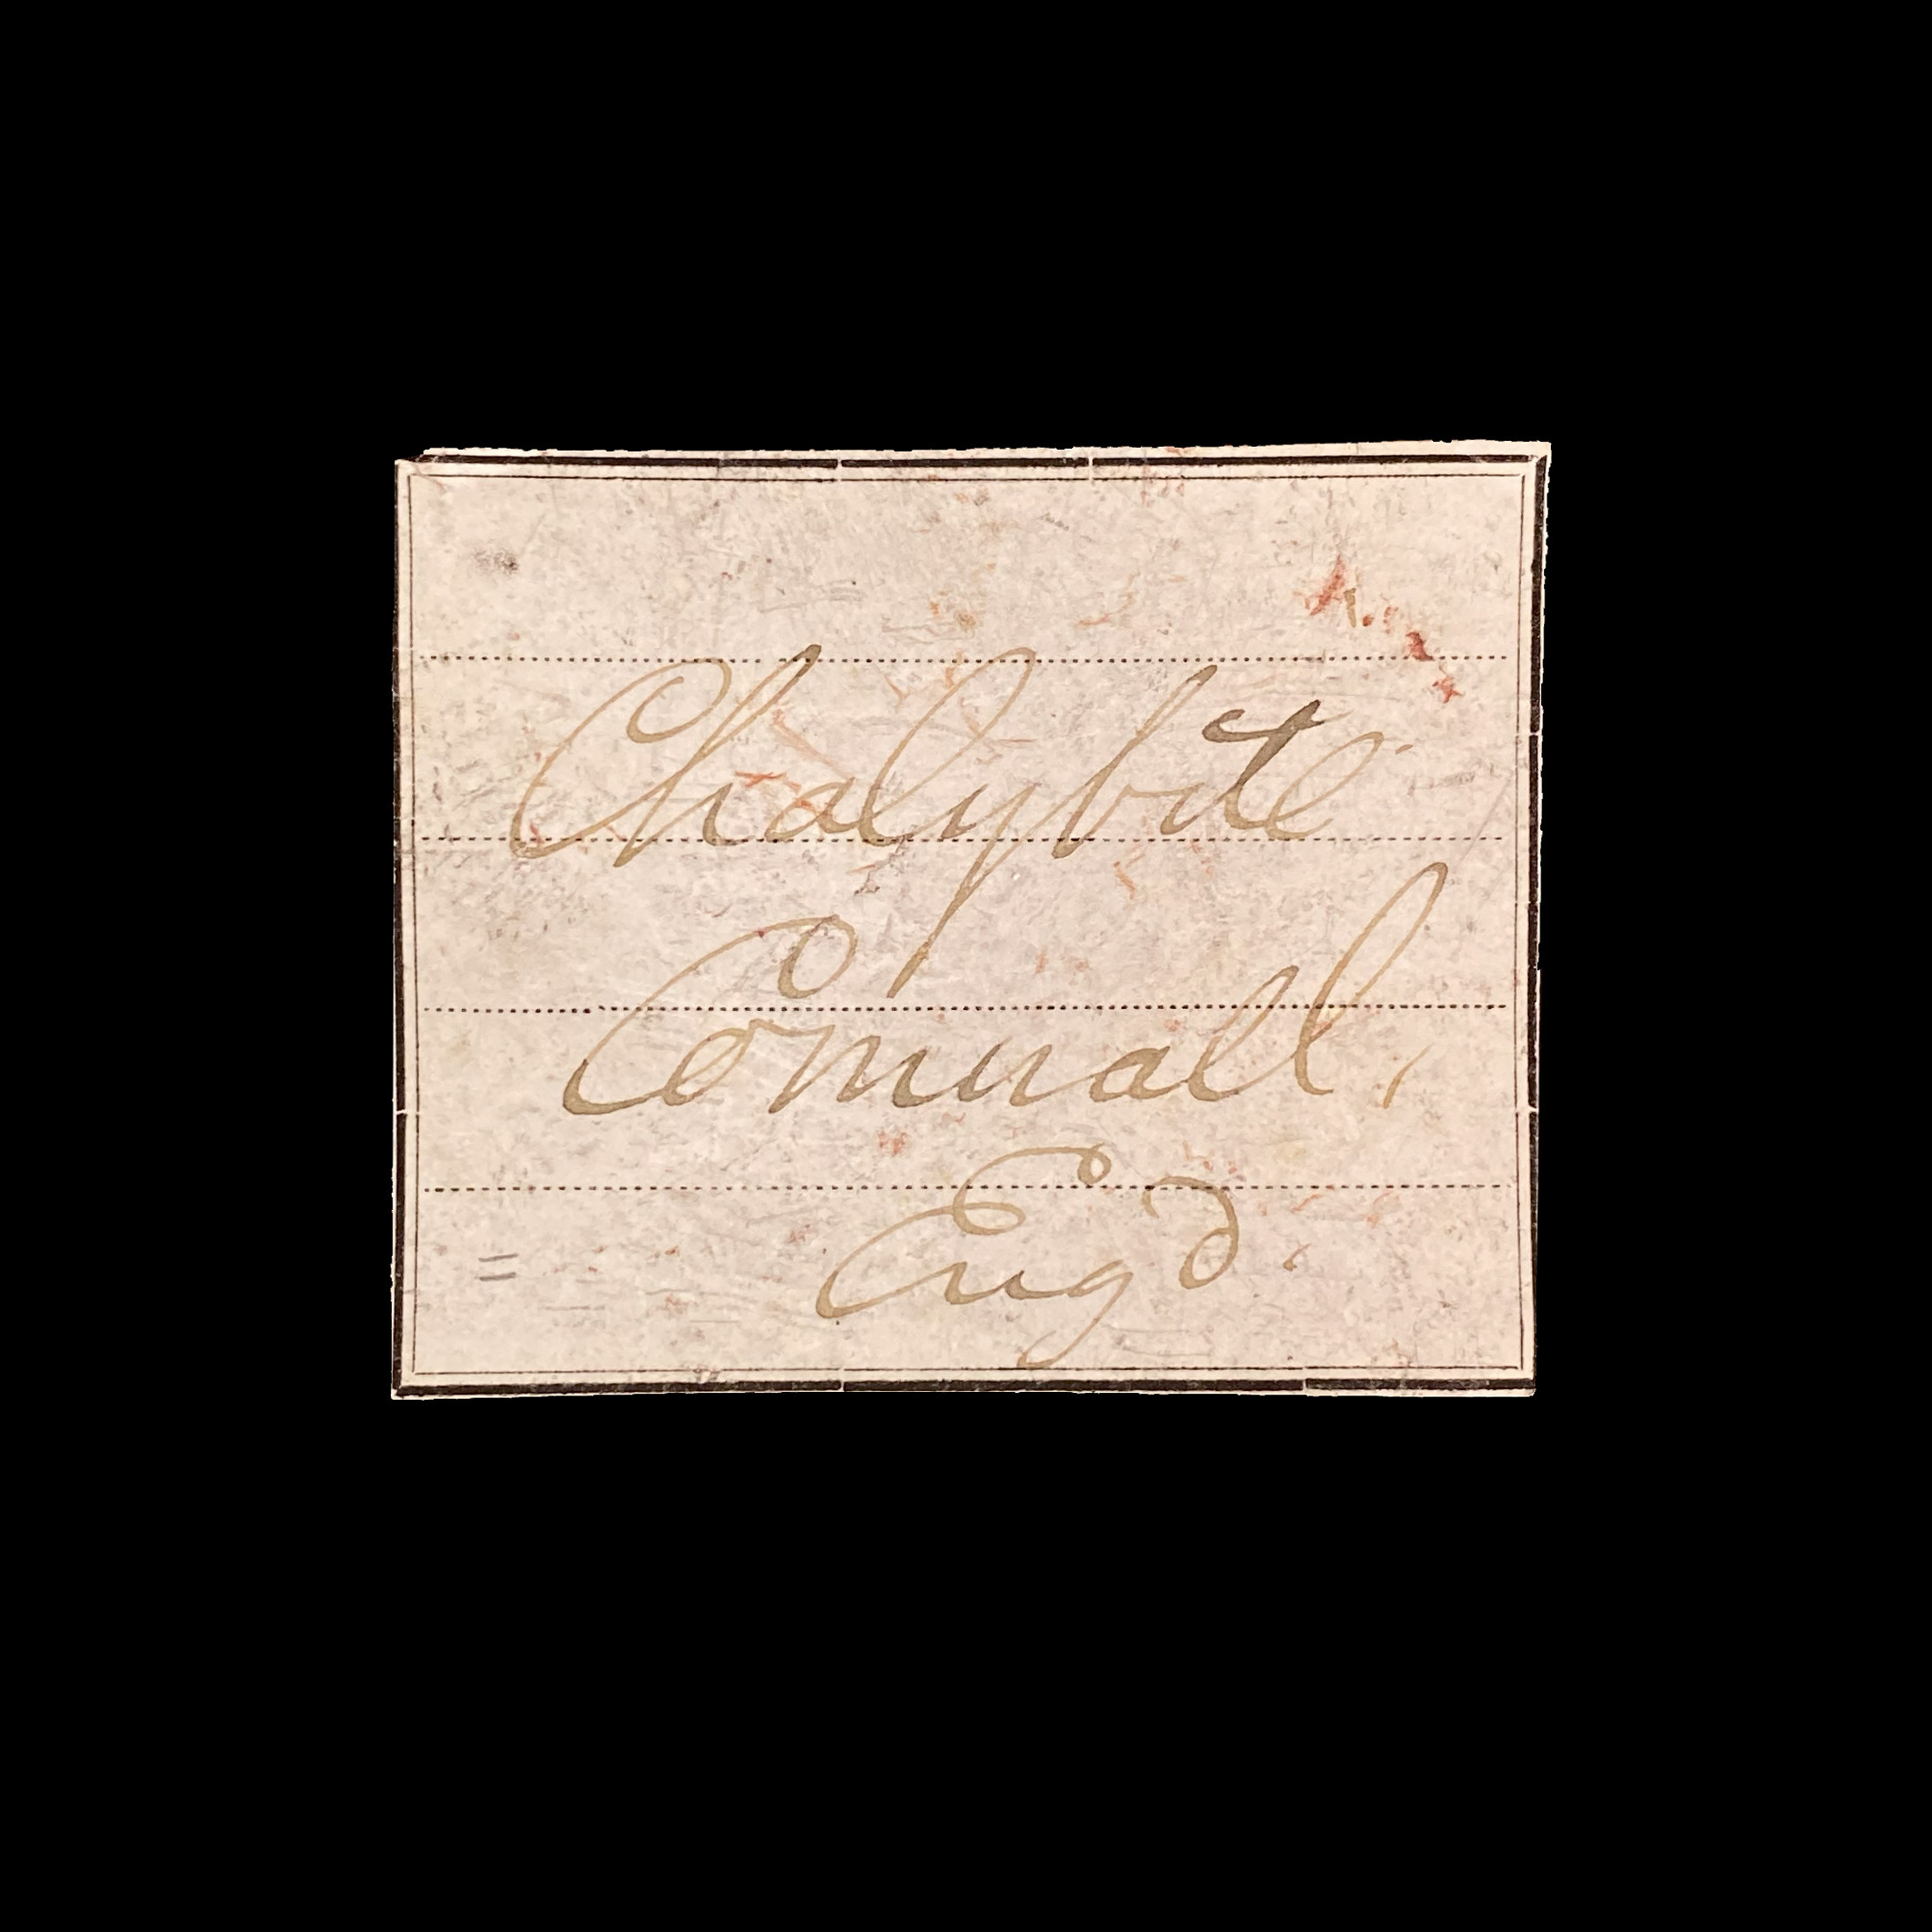 Chalybite
Cornwall,
Engd.
=